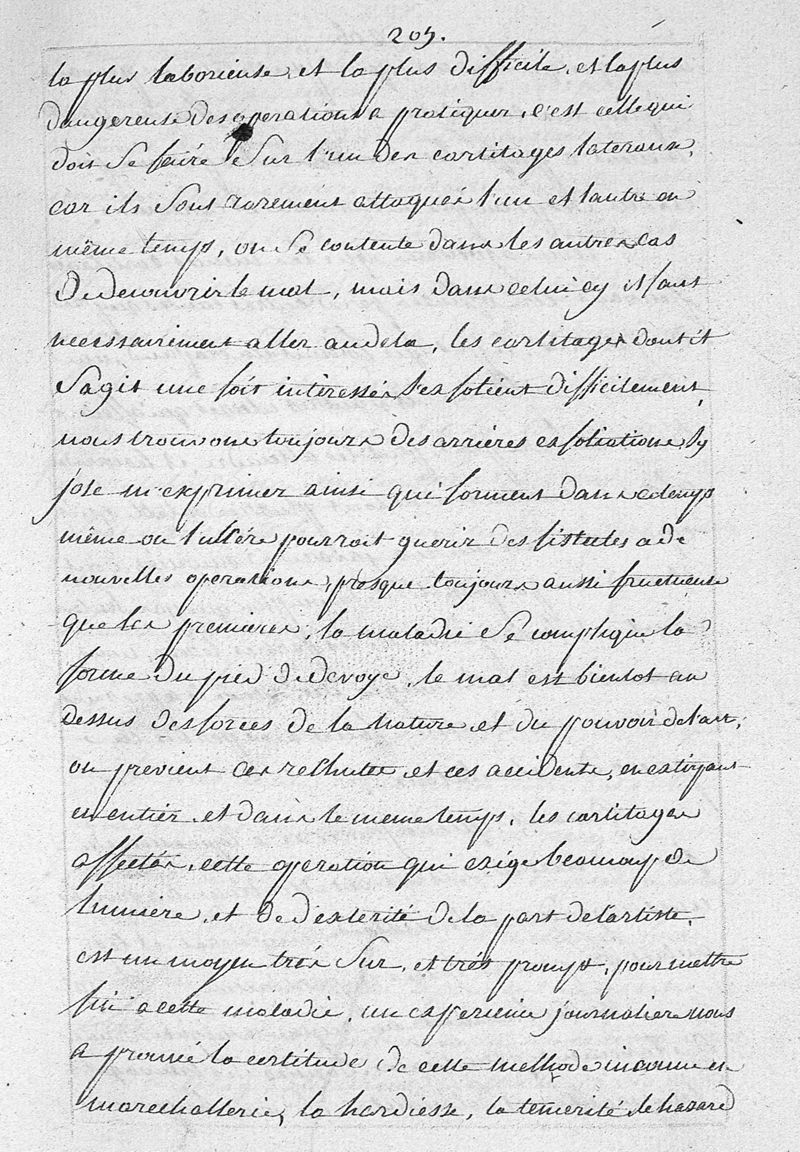 205.
la plus laborieuse et la plus difficile, et la plus
dangereuse des operations a pratiquer, c'est celle qui
doit se faire sur l'un des cartilages lateraux,
car ils sont rarement attaqués l'un et lautre en
même temps, on se contente dans les autres cas
de decouvrir le mal, mais dans celui cy il faut
necessairement aller au dela, les cartilages dont il
s'agit une fois interessés s'exfolient difficilement,
nous trouvons toujours des arrières exfoliations sy
jose m'exprimer ainsi qui forment dans ce temps
même ou l'ulsére pourroit guerir des fistules a de
nouvelles operations, presque toujours aussi fructueuse
que les premeres, la maladie se complique la
forme du pied de devoye, le mal est bientot au
dessus des forces de la nature et du pouvoir de l'art,
on previent ces rechutes et ces accidents, en extirpant
en entier et dans le meme temps, les cartilages
affectés, cette operation qui exige beaucoup de
lumiere, et de dexterité de la part de l'artiste.
est un moyen trés sur, et trés prompt, pour mettre
fin a cette maladie, un experience journaliere nous
a prouvé la certitude de cette methode inconnue en
marechallerie, la hardiesse, la temerité le hazard